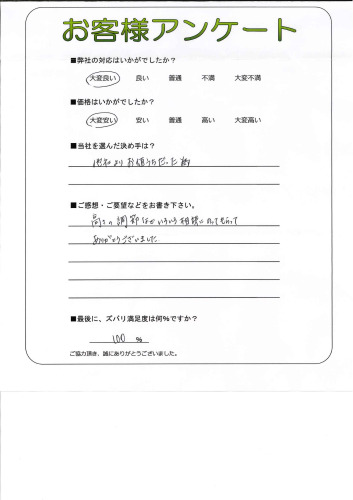 お客様アンケート
■弊社の対応はいかがでしたか？
大変良い 良い 普通 不満 大変不満
■価格はいかがでしたか？
大変安い 安い 普通 高い 大変高い
■当社を選んだ決め手は？
他社よりお値うちだった為
■ご感想・ご要望などをお書き下さい。
高さの調節などいろいろ相談にのってもらって
ありがとうございました
■最後に、ズバリ満足度は何％ですか？
100 ％
ご協力頂き、誠にありがとうございました。